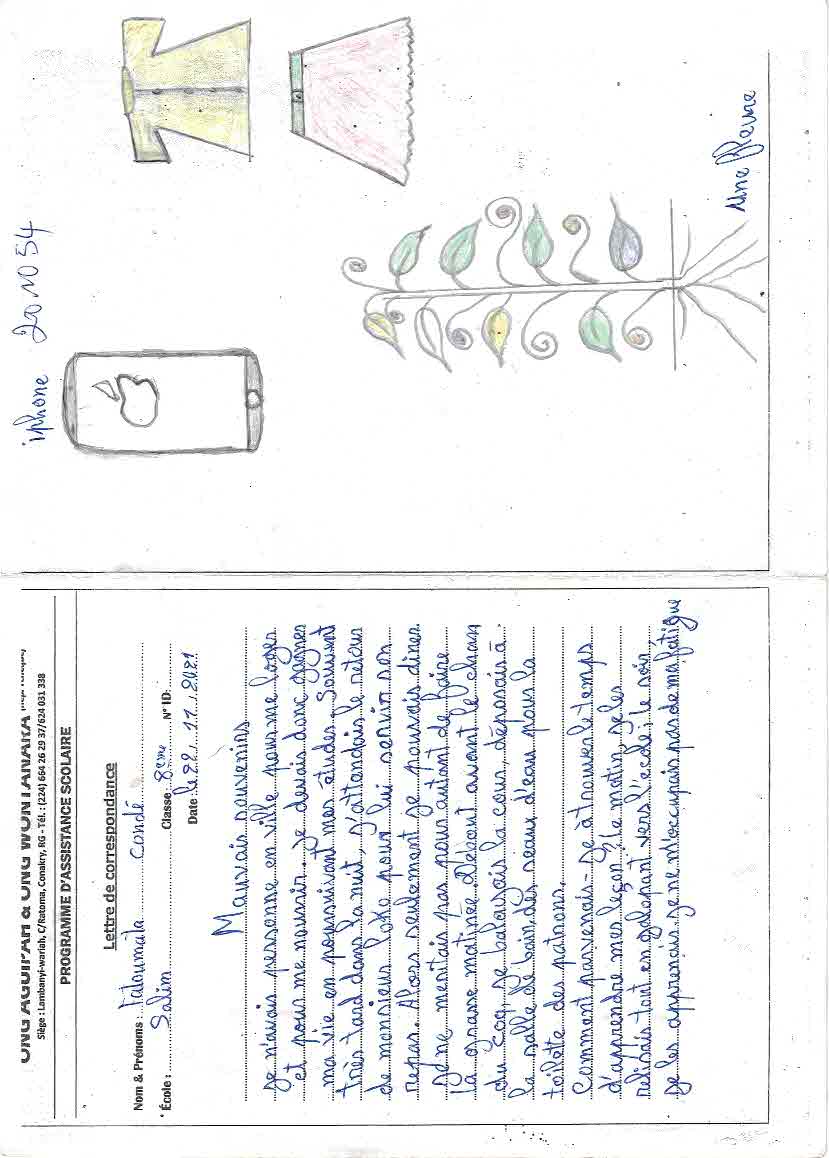 ONG AGUIPAH & ONG WONTANARA
Siège : Lambanyi-wariah, C/Ratoma, Conakry, RG - Tél. : (224) 664 26 29 37/624 031 338
PROGRAMME D'ASSISTANCE SCOLAIRE
Lettre de correspondance
Nom & Prénoms : Fatoumata Condé
École : Salim Classe : 8ème N° ID:
Date : le 22, 11, 2021
Mauvais souvenirs
Je n'avais personne en ville pour me loger
et pour me nourrir. Je devais donc gagner
ma vie en poursuivant mes études. Souvent
très tard dans la nuit, j'attendais le retour
de monsieur loko pour lui servir son
repas. Alors seulement je pouvais diner
Je ne meritais pas pour autant de faire
la grasse matinée. Debout avant le chan
du coq, je balayais la cour, déposais à
la salle de bain des seaux d'eau pour la
toilette des patrons.
Comment parvenais-je à trouver le temps
d'apprendre mes leçon? le matin, je les
relisais tout en galopant vers l'école, le soir,
je les apprenais. je ne m'occupais pas de ma fatigue
iphone 201054
Une fleure